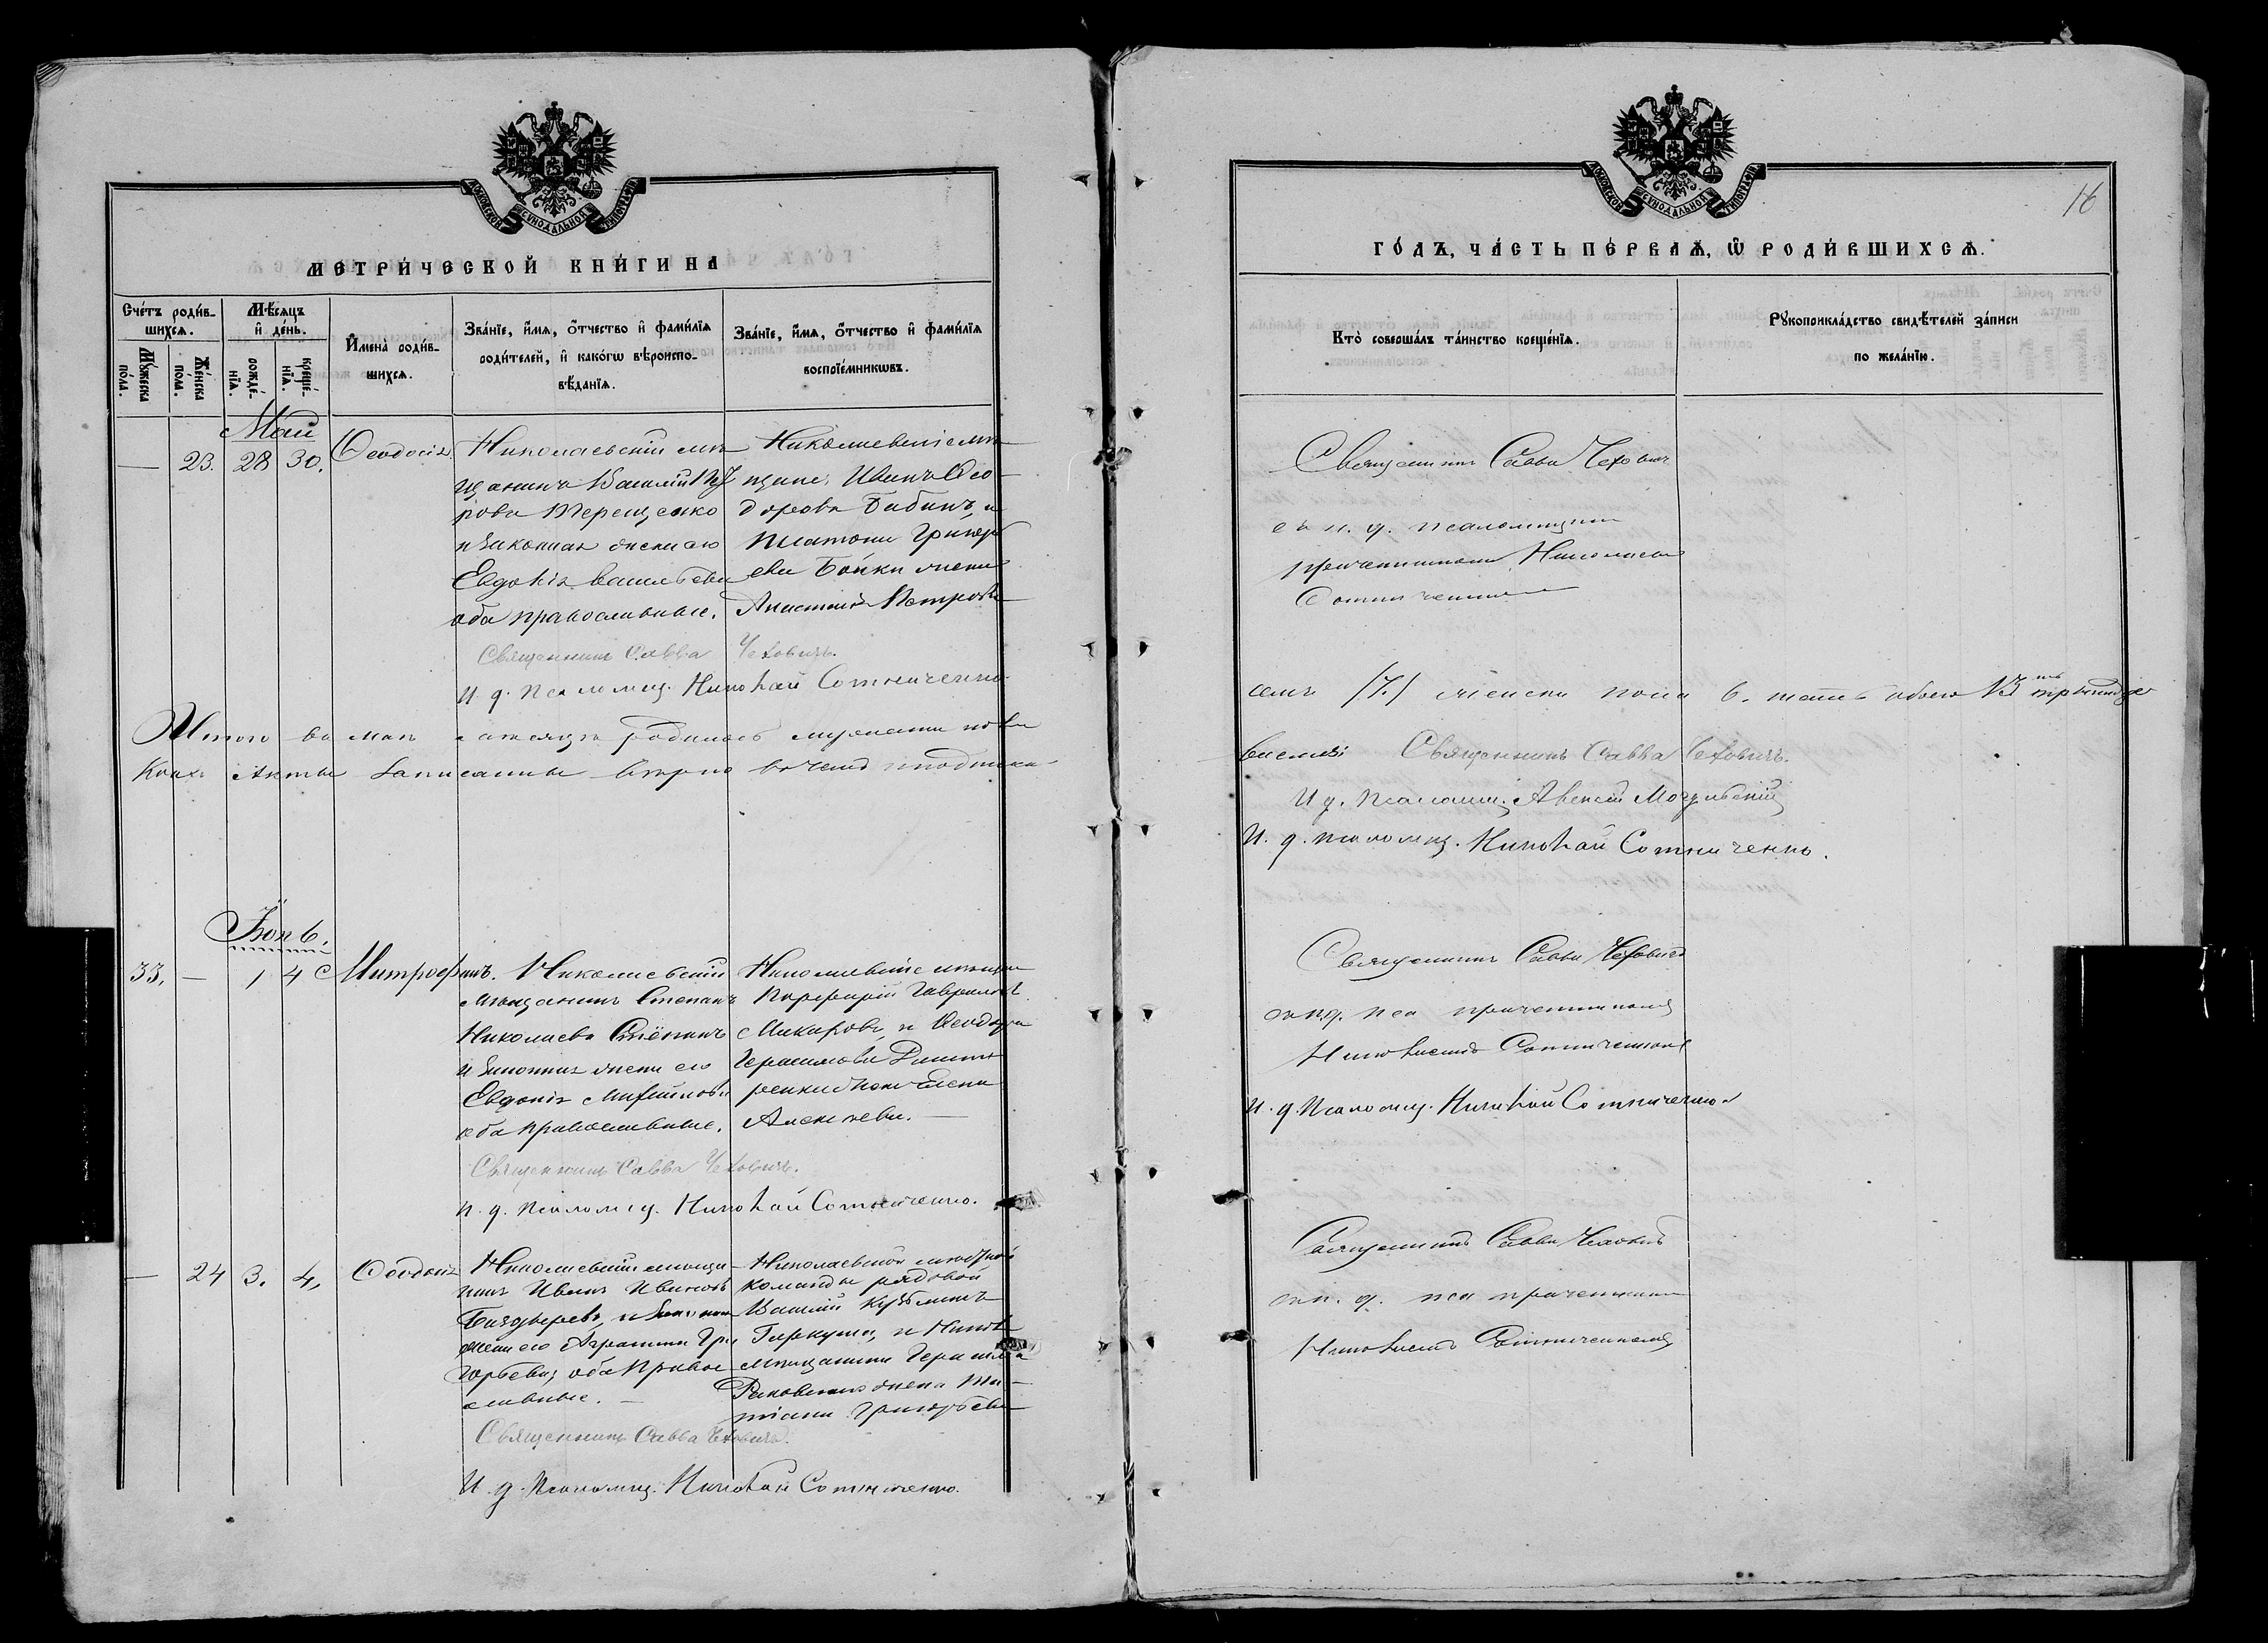 МОСКОВСКОЙ СѴНОДАЛЬНОЙ ТИПОГРАФІИ
МЕТРИ́ЧЕСКОЙ КНИ́ГИ НА
Сче́тъ роди́в-
шихсѧ.
Мꙋ́жеска
по́ла.
Же́нска
по́ла.
Мѣ́сѧцъ
и҆ де́нь.
рожде́-
нїѧ.
креще́-
нїѧ.
И҆мена̀ роди́в-
шихсѧ.
Зва́нїе, и҆́мѧ, ѻ҆́тчество и҆ фами́лїѧ
роди́телей, и҆ како́гѡ вѣроиспо-
вѣ́данїѧ.
Зва́нїе, и҆́мѧ, ѻ҆́тчество и҆ фами́лїѧ
воспрїе́мникѡвъ.
Май
— 23. 28 30. Ѳеодосія
Николаевскій мѣ-
щанинъ Василій
рова Терещенко
и законная жена его
Евдокія Васильева
оба православные.
Николаевскіе мѣ-
щане, Иванъ Ѳео-
дорова Бабинъ, и
Платона Григорь
ева Бойки жена
Анастасія Петрова
Священникъ Савва Чехович.
И. д. Псаломщ. Николай Сотниченко.
Итого въ маѣ мѣсяцѣ родилось мужеска пола
Коихъ Акты записанны вѣрно въ чемъ и подписа-
Іюнь.
33. — 1 4 Митрофанъ.
Николаевскій
мѣщанинъ Степанъ
Николаевъ
и законная жена его
Евдокія Михайлова
оба православные.
Николаевскіе мѣщане
Порфирій Гавриловъ
Макаровъ, и Ѳеодора
Герасимова Дмит
ренка жена Елена
Алексѣева. —
Священникъ Савва Чехович.
И. д. Псаломщ. Николай Сотниченко.
— 24 3. 4. Ѳеодосія
Николаевскій мѣща-
нинъ Иванъ Ивановъ
и законная
жена его Агрипина Гри
горьева, оба Право
славные. —
Николаевской мѣстной
команды рядовой
Василій Кузьминъ
и Никол
мѣщанина Герасима
жена Та-
тіана Григорьева
Священникъ Савва Чехович.
И. д. Псаломщ. Николай Сотниченко.
МОСКОВСКОЙ СѴНОДАЛЬНОЙ ТИПОГРАФІИ
16
ГО́ДЪ, ЧА́СТЬ ПЕ́РВАѦ, Ѡ҆ РОДИ́ВШИХСѦ.
Кто̀ соверша́лъ та́инство креще́нїѧ.
Рꙋкоприкла́дство свидѣ́телей за́писи
по жела́нїю.
Священникъ Савва Чеховичъ
съ и. д. псаломщика
причетникомъ Николаемъ
Сотниченкомъ
семь (7.) женска пола 6. шесть обоего 13ть тринадца
Священникъ Савва Чеховичъ.
И д. Псаломщ. Алексій Могульскій
И. д. псаломщ. Николай Сотниченко.
Священникъ Савва Чеховичъ
съ и.д. пса причетникомъ
Николаемъ Сотниченкомъ
И. д. Псаломщ. Николай Сотниченко
Священникъ Савва Чеховичъ
съ и. д. пса причетникомъ
Николаемъ Сотниченкомъ